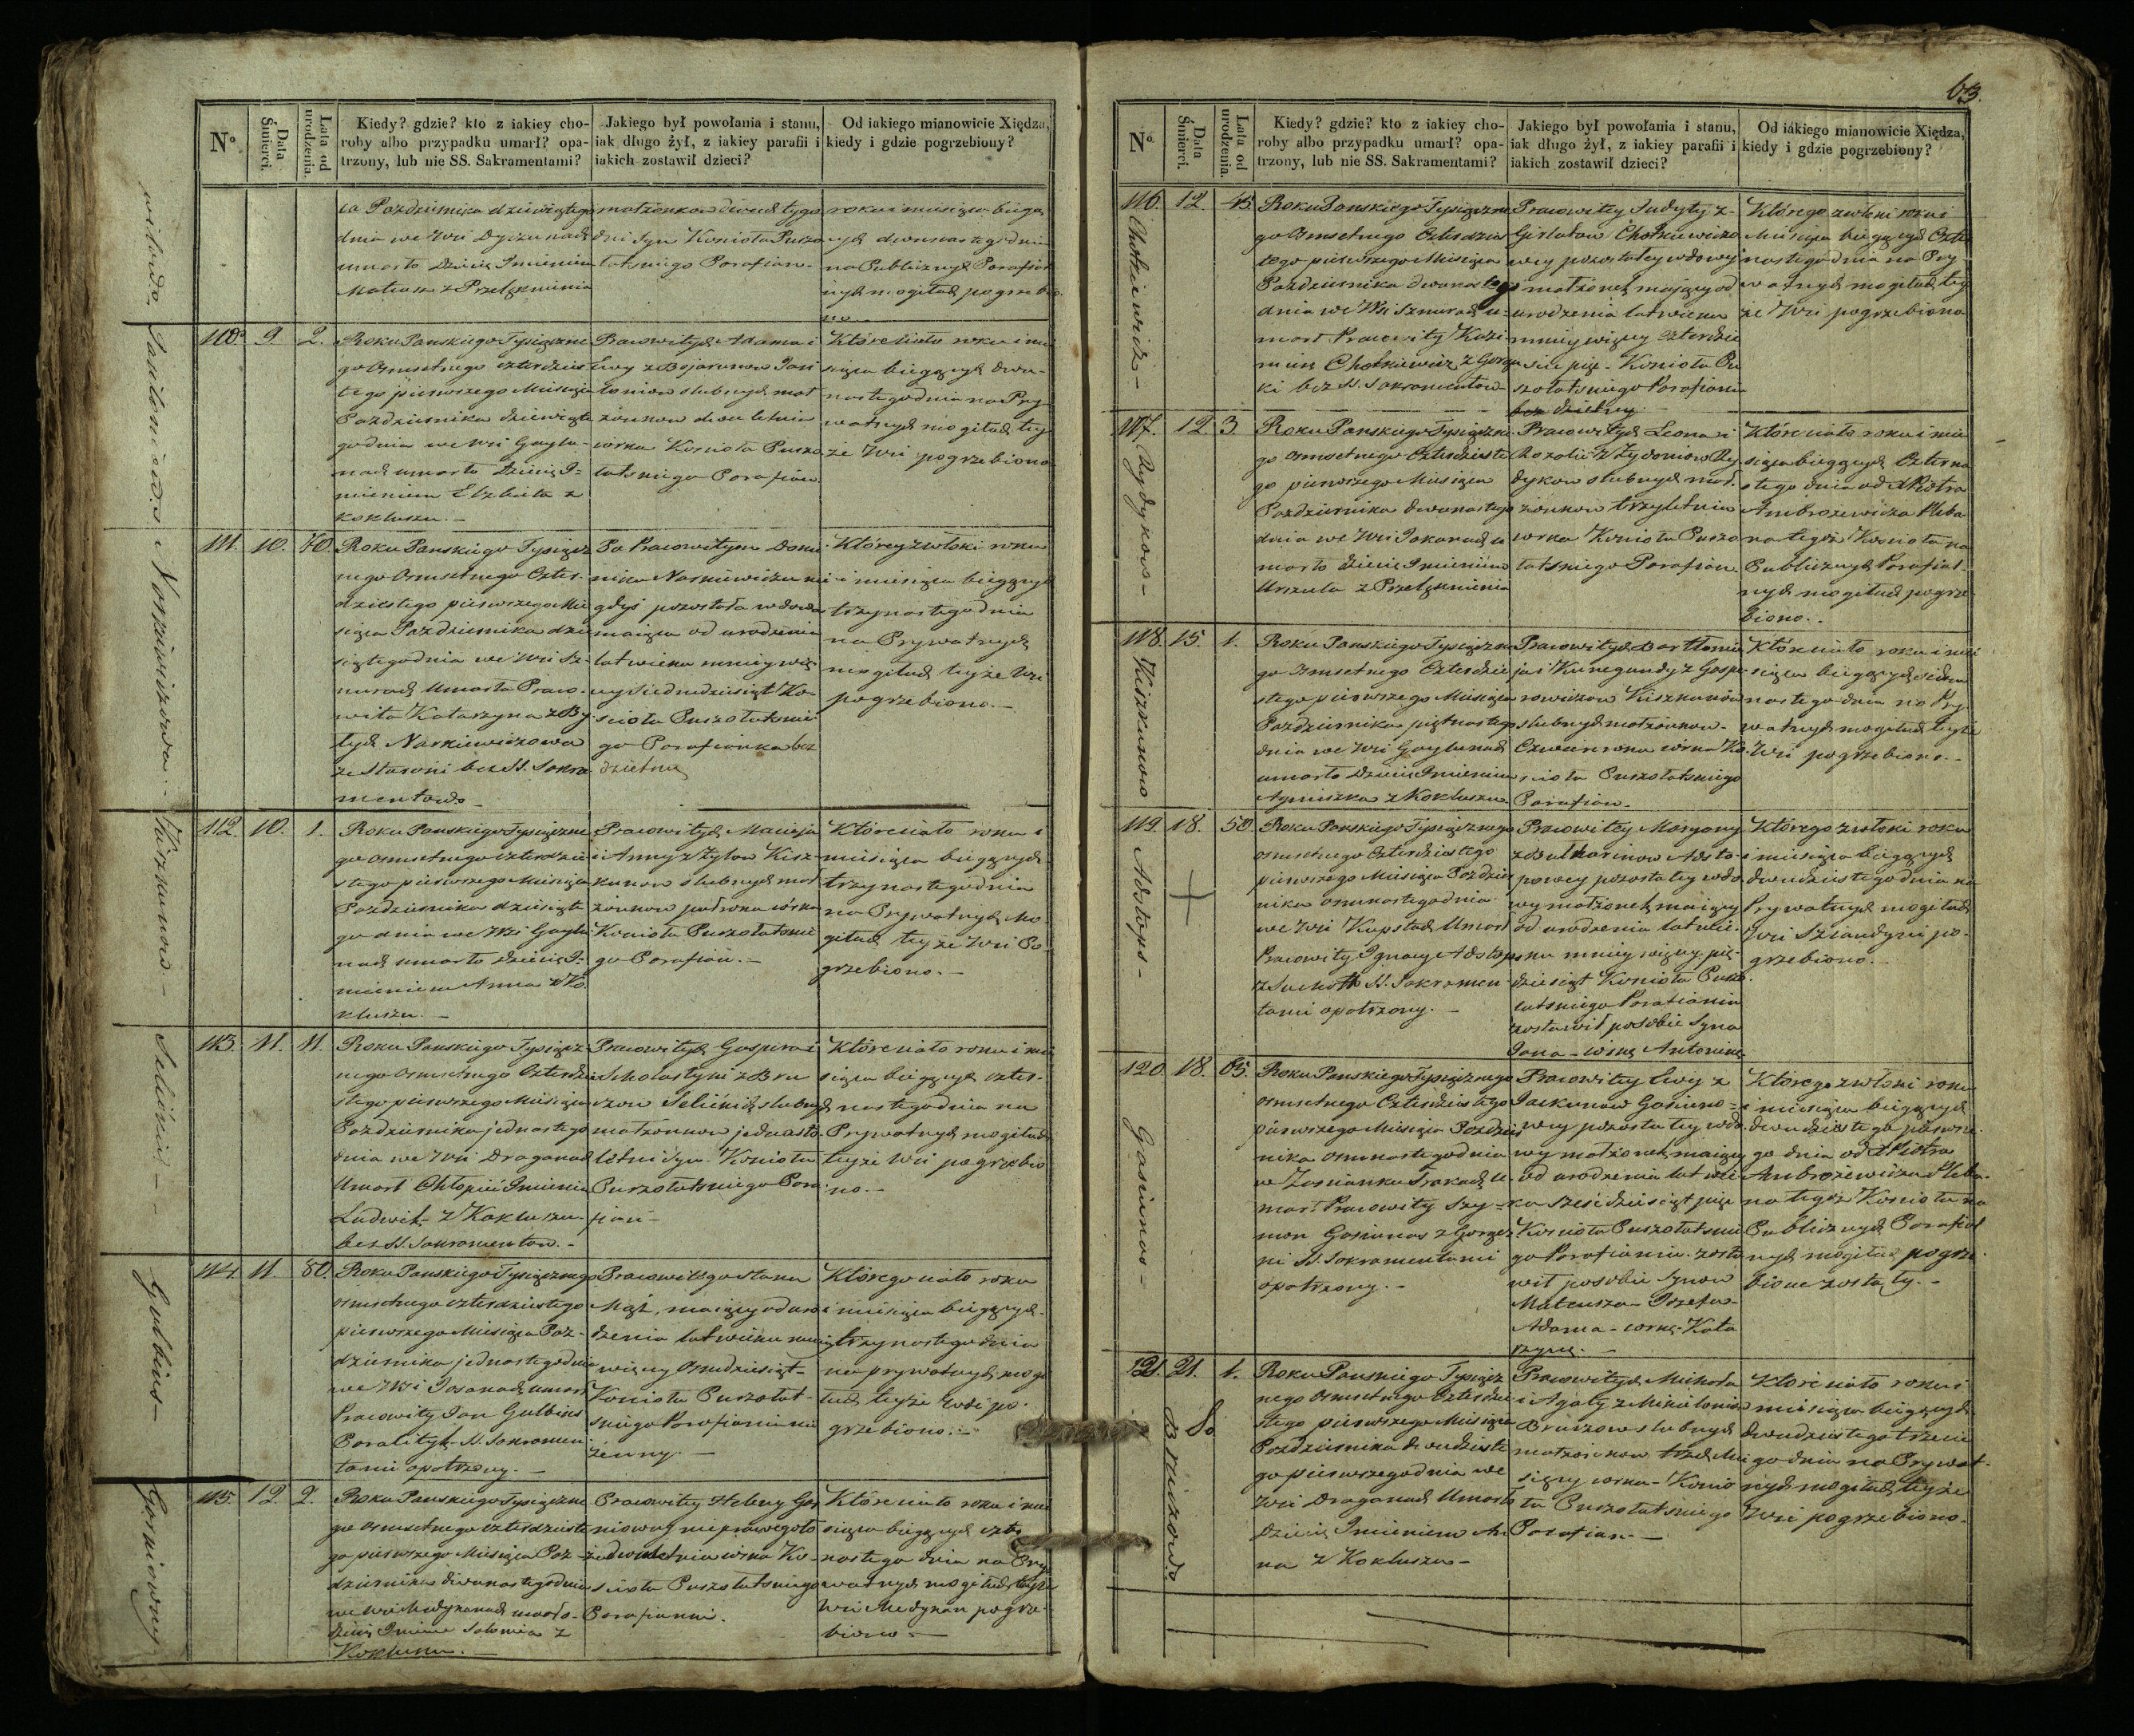 No
Data Śmierci.
Lata od urodzenia.
Kiedy? gdzie? kto z iakiey cho-
roby albo przypadku umarł? opa-
trzony, lub nie SS. Sakramentami?
Jakiego był powołania i stanu,
iak długo żył, z iakiey parafii i
iakich zostawił dzieci?
Od iakiego mianowicie Xiędza,
kiedy i gdzie pogrzebiony?
ca Pazdziernika dziewiątego
dnia we Wsi
umarło Dziecię Imieniem
Mateusz z Przelęknienia
dni Syn Kościoła Puszo
łatskiego Parafian.
roku i miesiąca bieżą
cych dwunastego dnia
na Publicznych Parafial
nych mogiłach pogrzebio
no
110. 9. 2.
Roku Pańskiego Tysiączne
go Osmsetnego czterdzies
tego pierwszego Miesiąca
Pazdziernika dziewiąte
go dnia we Wsi Gayla-
nach umarło Dziecię I-
mieniem Elżbieta z
Kokluszu.
Pracowitych Adama i
Ewy z Bojarunow Jasi
loniow slubnych mał
żonkow dwuletnia
corka Kościoła Puszo
łatskiego Parafian
Które ciało roku i mie
siąca bieżących dwu-
nastego dnia na Pry-
watnych mogiłach tey
że Wsi pogrzebiono
111. 10. 70.
Roku Pańskiego Tysiącz
nego Osmsetnego Czter-
dziestego pierwszego Mie
siąca Pazdziernika dzie
siątego dnia we Wsi Sz-
nurach Umarła Praco-
wita Katarzyna z By
tych Narkiewiczowa
ze Starości bez SS. Sakra
mentow
Po Pracowitym Domi
niku Narkiewiczu nie
gdyś pozostała wdowa
maiąca od urodzenia
lat wieku mniey wię
cey Siedmdziesiąt Ko-
ścioła Puszołatskie
go Parafianka bez
dzietna
Którey zwłoki roku
i miesiąca bieżących
trzynastego dnia
na Prywatnych
mogiłach teyże Wsi
pogrzebiono.
Narkiewiczowa
112. 10. 1.
Roku Pańskiego Tysiączne
go osmsetnego czterdzie
stego pierwszego Miesiąca
Pazdziernika dziesiąte
go dnia we Wsi Gayla
nach umarło dziecię I-
mieniem Anna z Ko
kluszu.
Pracowitych Macieja
i Anny z Żyłow Kisz-
kunow slubnych mał
żonkow pułroku córka
Kościoła Puszołatskie
go Parafian.
Które ciało roku i
miesiąca bieżących
trzynastego dnia
na Prywatnych Mo
giłach teyże Wsi Po
grzebiono.
Kiszkunow
113. 11. 11.
Roku Pańskiego Tysiącz
nego Osmsetnego Czterdzie
stego pierwszego Miesiąca
Pazdziernika jednastego
dnia we Wsi Draganach
Umarł Chłopiec Imieniem
Ludwik z Kokluszu
bez SS. Sakramentow.
Pracowitych Gaspra i
Scholastyki z Bru
zow Selickich slubnych
małżonkow jednasto-
letni syn Kościoła
Puszołatskiego Para
fian
Które ciało roku i mie
siąca bieżących czter-
nastego dnia na
Prywatnych mogiłach
teyże Wsi pogrzebio
no.
114. 11. 80.
Roku Pańskiego Tysiącznego
osmsetnego czterdziestego
pierwszego Miesiąca Paz-
dziernika jednastego dnia
we Wsi Josanach umarł
Pracowity Jan Gulbins
Paralityk SS. Sakramen
tami opatrzony.
Pracowitego stanu
Mąż, maiący od uro
dzenia lat wieku mniey
więcey Osmdziesiąt
Kościoła Puszołat-
skiego Parafianin nie
żenny.
Którego ciało roku
i miesiąca bieżących
trzynastego dnia
na prywatnych mogi
łach teyże Wsi po-
grzebiono.
Gulbins
115. 12. 2.
Roku Pańskiego Tysiączne
go Osmsetnego czterdzieste
go pierwszego Miesiąca Paz-
dziernika dwunastego dnia
we Wsi Medykanach umarło
dziecię Imieniem Salomea z
Kokluszu.
Pracowitey Heleny Gor
niowny nieprawego ło
ża dwuletnia corka Ko-
ścioła Puszołatskiego
Parafianki.
Które ciało roku i mie
siąca bieżących czter
nastego dnia na Pry
watnych mogiłach teyże
Wsi Medykan pogrze
biono
Gorniowny
63.
No
Data Śmierci.
Lata od urodzenia.
Kiedy? gdzie? kto z iakiey cho-
roby albo przypadku umarł? opa-
trzony, lub nie SS. Sakramentami?
Jakiego był powołania i stanu,
iak długo żył, z iakiey parafii i
iakich zostawił dzieci?
Od iakiego mianowicie Xiędza,
kiedy i gdzie pogrzebiony?
116. 12. 45.
Chotkiewicz
Roku Pańskiego Tysiączne
go Osmsetnego Czterdzies
tego pierwszego Miesiąca
Pazdziernika dwunastego
dnia we Wsi Sznurach u-
marł Pracowity Kazi
mierz Chotkiewicz z Gorącz
ki bez SS. Sakramentow
Pracowitey Judyty z
Chotkiewiczo
wey pozostałey wdowy
małżonek maiący od
urodzenia lat wieku
mniey więcey czterdzie
ści pięć Kościoła Pu
szołatskiego Parafianin
bez dzietny
Którego zwłoki roku i
Miesiąca bieżących Czter
nastego dnia na Pry
watnych mogiłach tey
że Wsi pogrzebiono
117. 12. 3.
Rydykow
Roku Pańskiego Tysiączne
go Osmsetnego Czterdzieste
go pierwszego Miesiąca
Pazdziernika dwunastego
dnia we Wsi Jokanach u
marło dziecię Imieniem
Urszula z Przelęknienia
Pracowitych Leona i
Rozalii z Żydoniow Ry
dykow slubnych mał-
żonkow trzyletnia
corka Kościoła Puszo
łatskiego Parafian
Które ciało roku i mie
siąca bieżących Czterna
stego dnia od X Piotra
Ambrożewicza Pleba
na tegoż Kościoła na
Publicznych Parafial-
nych mogiłach pogrze-
biono.
118. 15. 1.
Kiszkunow
Roku Pańskiego Tysiączne
go Osmsetnego Czterdzie
stego pierwszego Miesiąca
Pazdziernika piętnastego
dnia we Wsi Gaylanach
umarło Dziecię Imieniem
Agnieszka z Kokluszu
Pracowitych Bartłomie
ja i Kunegundy z Gaspe
rowiczow Kiszkunów
slubnych małżonkow
Czwierć roku córka Ko
ścioła Puszołatskiego
Parafian.
Które ciało roku i mie
siąca bieżących siedm
nastego dnia na Pry
watnych mogiłach teyże
Wsi pogrzebiono.
119. 18. 50.
Adstops
Roku Pańskiego Tysiącznego
osmsetnego Czterdziestego
pierwszego Miesiąca Pazdzier
nika osmnastego dnia
we Wsi Kupstach Umarł
Pracowity Ignacy Adstops
z Suchoth SS. Sakramen
tami opatrzony.
Pracowitey Maryany
Adsto
powey pozostałey wdo
wy małżonek maiący
od urodzenia lat wie-
ku mniey więcey pię-
dziesiąt Kościoła Puszo
łatskiego Parafianin
zostawił po sobie Syna
Jana - córkę Antoninę
Którego zwłoki roku
i miesiąca bieżących
dwudziestego dnia na
Prywatnych mogiłach
Wsi Sziaudyni po-
grzebiono.
120. 18. 65.
Gasiunas
Roku Pańskiego Tysiącznego
osmsetnego Czterdziestego
pierwszego Miesiąca Pazdzier
nika osmnastego dnia
w Zascianku Trakach u
marł Pracowity Szy-
mon Gasiunas z Gorącz
ki SS. Sakramentami
opatrzony.
Pracowitey Ewy z
Gasiuno-
wey pozostałey wdo-
wy małżonek maiący
od urodzenia lat wie
ku sześćdziesiąt pięć
Kościoła Puszołatskie
go Parafianin zosta
wił po sobie synow
Mateusza - Józefa
Adama - corkę Kata
rzynę.
Którego zwłoki roku
i miesiąca bieżących
dwudziestego pierwsze
go dnia od X Piotra
Ambrożewicza Pleba-
na tegoż Kościoła na
Publicznych Parafial
nych mogiłach pogrze-
bione zostały.
121. 21. 1.
Bruzow
Roku Pańskiego Tysiącz
nego Osmsetnego Czterdzie
stego pierwszego Miesiąca
Pazdziernika dwudzieste
go pierwszego dnia we
Wsi Draganach Umarło
Dziecię Imieniem An
na z Kokluszu
Pracowitych Michała
i Agaty z
Bruzow slubnych
małżonkow trzech mie
sięcy corka Kościo
ła Puszołatskiego
Parafian
Które ciało roku i
miesiąca bieżących
dwudziestego trzecie
go dnia na Prywat-
nych mogiłach teyże
Wsi pogrzebiono.